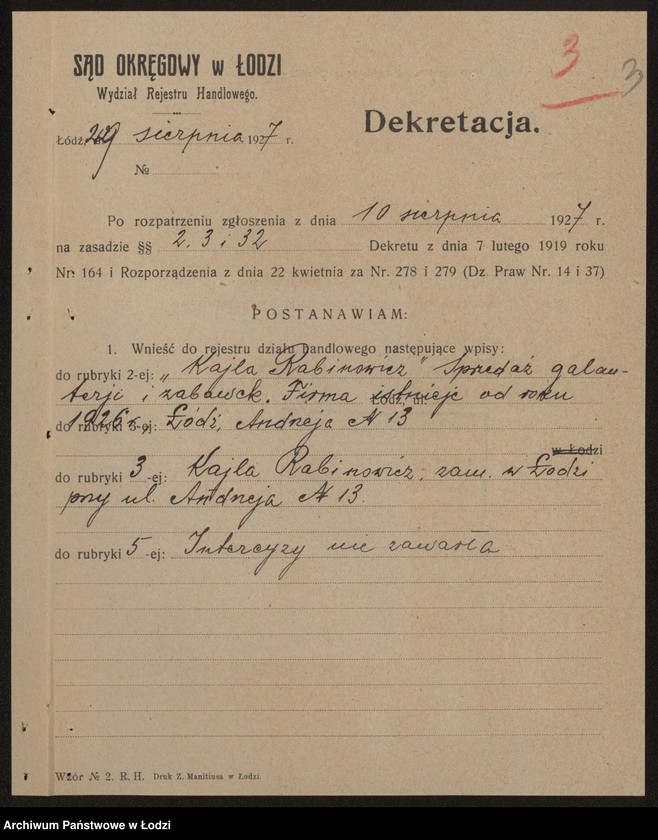 3
3
SĄD OKRĘGOWY w ŁODZI
Wydział Rejestru Handlowego.
Dekretacja.
Łódź, 29 sierpnia 1927 r.
№
Po rozpatrzeniu zgłoszenia z dnia 10 sierpnia 1927 r.
na zasadzie §§ 2. 3 i 32 Dekretu z dnia 7 lutego 1919 roku
Nr. 164 i Rozporządzenia z dnia 22 kwietnia za Nr. 278 i 279 (Dz. Praw Nr. 14 i 37)
POSTANAWIAM:
1. Wnieść do rejestru działu handlowego następujące wpisy:
do rubryki 2-ej: „Kajla Rabinowicz" Sprzedaż galan-
terji i zabawek. Firma istnieje od roku
Łódź, ul.
1926 r. Łódź, Andrzeja № 13
do rubryki 3-ej:
w Łodzi
do rubryki 3-ej: Kajla Rabinowicz, zam. w Łodzi
przy ul. Andrzeja № 13.
do rubryki 5-ej: Intercyzy nie zawarła
Wzór № 2. R. H. Druk Z. Manitiusa w Łodzi.
Archiwum Państwowe w Łodzi